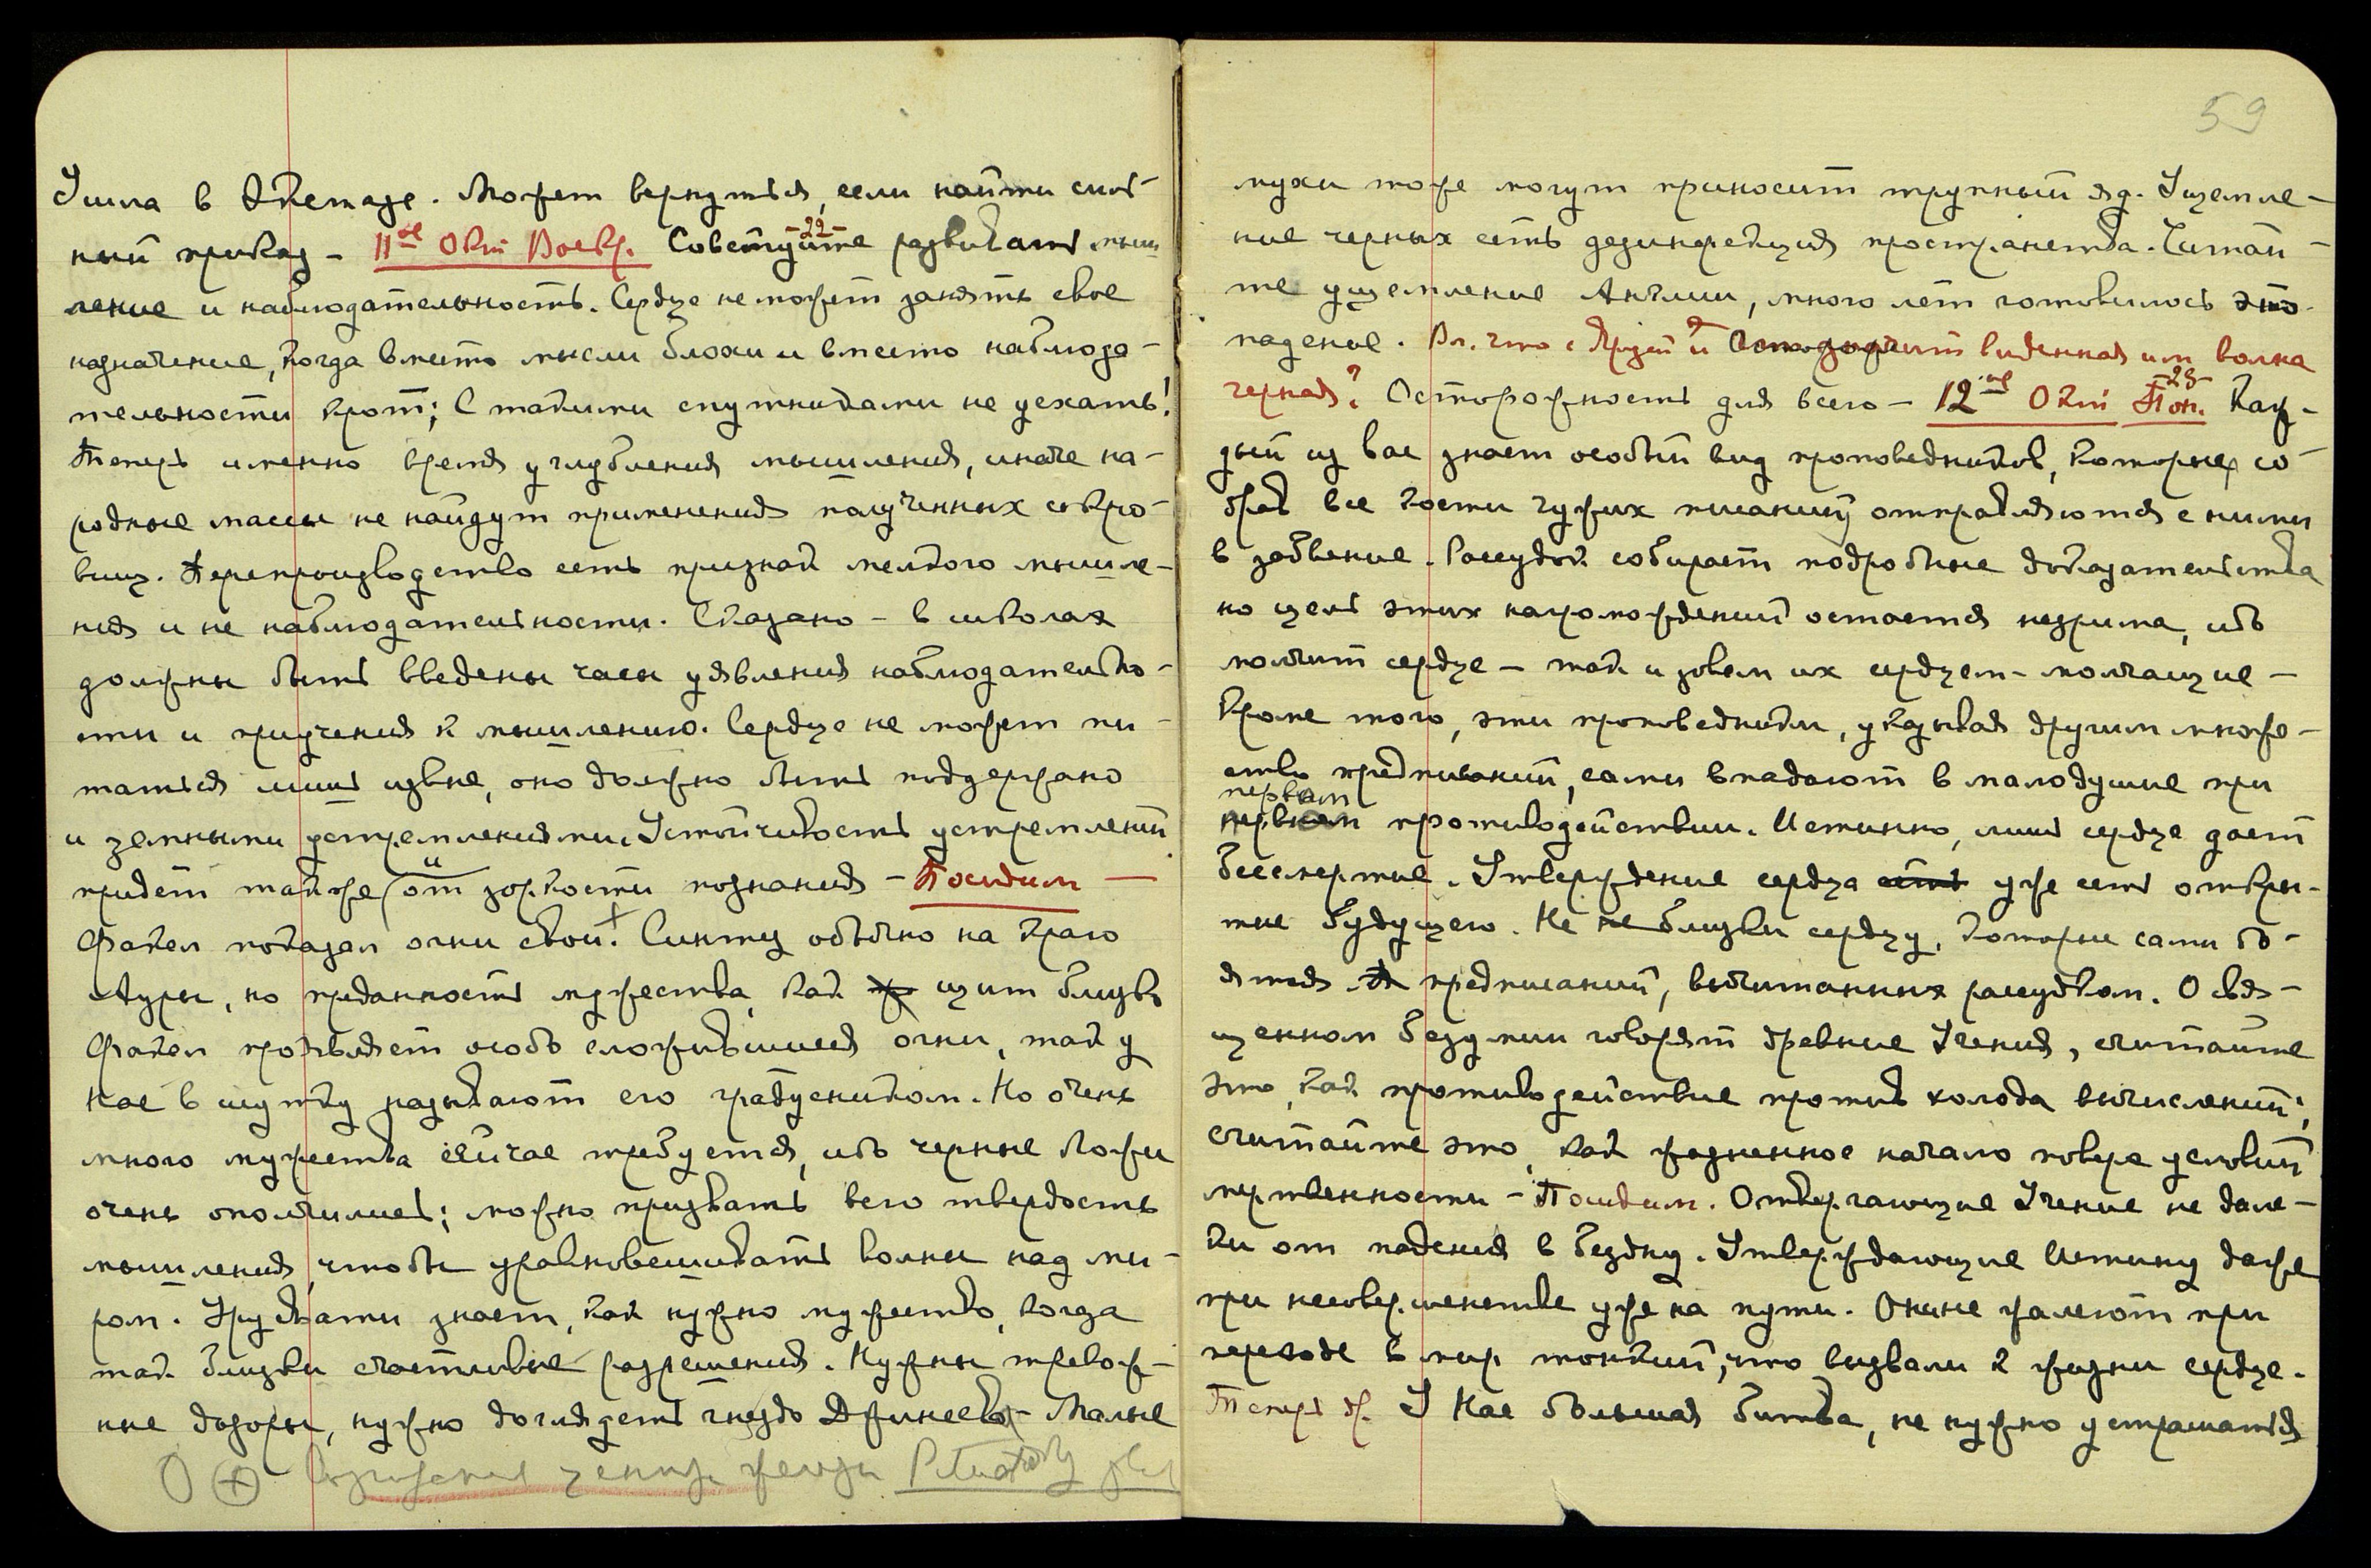 Ушла в Экстазе. Может вернуться, если найти силь-
ный приказ — 11ое Окт Воскр. Советуйте развивать мыш
-22-
ление и наблюдательность. Сердце не может занять свое
назначение, когда вместо мысли блохи и вместо наблюда-
тельности крот; с такими спутниками не уехать!
Теперь именно время углубления мышления, иначе на-
родные массы не найдут применения полученных сокро-
вищ. Перепроизводство есть признак мелкого мышле-
ния и не наблюдательности. Сказано — в школах
должны быть введены часы уявления наблюдательно-
сти и приучения к мышлению. Сердце не может пи-
таться лишь извне, оно должно быть поддержано
и земными устремлениями. Устойчивость устремлений
придет также (от зоркости познания — Посидим —
и
Факел показал огни свои. Синтз обычно на краю
+
Ауры, но преданность мужества, как щит близко
Факел проявляет особо сложившиеся огни, так у
Нас в шутку называют его градусником. Но очень
много мужества сейчас требуется, ибо черные Ложи
очень ополчились; можно призвать всю твердость
мышления, чтобы уравновешивать волны над ми-
ром. Урусвати знает, как нужно мужество, когда
так близки счастливые разрешения. Нужны тревож-
ные дозоры, нужно доглядеть гнездо Джинсов — Малые
59
мухи тоже могут приносить трупный яд. Ущемле-
ние черных есть дезинфекция пространства. Читай-
те ущемление Англии, много лет готовилось это
падение. Вл. что с и виденная им волна
черная? Осторожность для всего — 12ое Окт Пон. Каж-
-23-
дый из вас знает особый вид проповедников, которые, со-
брав все кости чужих писаний, отправляются с ними
в забвение. Рассудок собирает подробные доказательства
но цель этих нагромождений остается незрима, ибо
молчит сердце — так и зовем их сердцем-молчащие —
Кроме того, эти проповедники, указывая другим множе-
ство предписаний, сами впадают в малодушие при
первом
первом противодействии. Истинно, лишь сердце дает
бессмертие. Утверждение сердца есть уже есть откры-
тие будущего. Не не близки сердцу, которые сами бо-
ятся предписаний, вычитанных рассудком. О свя-
щенном безумии говорят древние Учения, считайте
это, как противодействие против холода вычислений;
считайте это, как жизненное начало поверх условий
мертвенности — Посидим. Отвергающие Учение не дале-
ки от падения в бездну. Утверждающие Истину даже
при несовершенстве уже на пути. Они не жалеют при
переходе в мир тонкий, что вызвали к жизни сердце.
Теперь др. У Нас большая битва, не нужно устрашаться